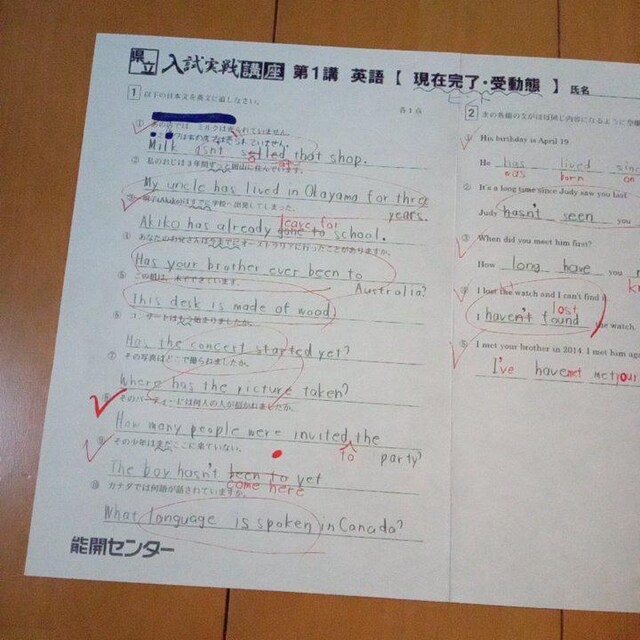 県立 入試実戦講座 第1講 英語【 現在完了・受動態 】 氏名
1 以下の日本文を英文に直しなさい。 各1点
①
Milk isn't that shop.
② 私のおじは3年間ずっと岡山に住んでいます。
My uncle has lived in Okayama for three
years.
(Akiko)はすでに学校へ出発してしまった。
leave for
Akiko has already gone to school.
④ あなたのお兄さんは今までにオーストラリアに行ったことがありますか。
Has your brother ever been to
Australia?
⑤ この机は、木でできています。
This desk is made of wood
⑥ コンサートはもう始まりましたか。
Has the concert started yet?
⑦ その写真はどこで撮られましたか。
Where has the picture taken?
⑧ そのパーティーには何人の人が招かれましたか。
How many people were invited the
to
party?
⑨ その少年はまだここに来ていない。
The boy hasn't been to yet
come here
⑩ カナダでは何語が話されていますか。
What language is spoken in Canada?
能開センター
2 次の各組の文がほぼ同じ内容になるように空
① His birthday is April 19.
He has lived since
was born on
② It's a long time since Judy saw you last
Judy hasn't seen you
③ When did you meet him first?
How long have you
④ I lost the watch and I can't find it
lost
I haven't found the watch.
⑤ I met your brother in 2014. I met him aga
I've have met our